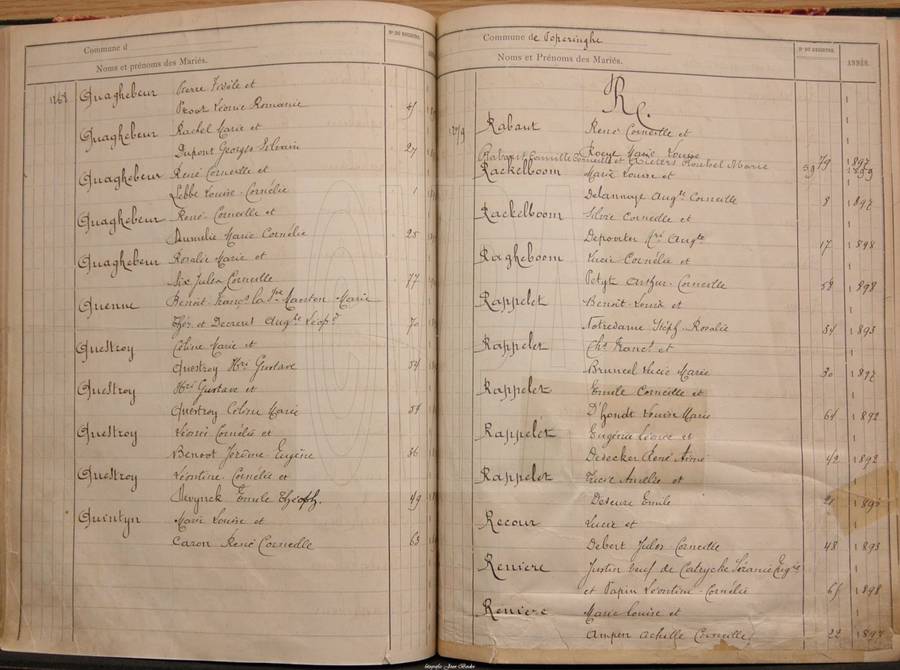 Commune d
Noms et prénoms des Mariés.
N° DU REGISTRE.
1268 Quaghebeur Pierre Fidèle et
Proot Léonie Romanie 45
Quaghebeur Rachel Marie et
Dupont Georges Silvain 27
Quaghebeur René Corneille et
Lebbe Louise Cornélie 1
Quaghebeur René Corneille et
Marie Cornélie 25
Quaghebeur Rosalie Marie et
Six Jules Corneille 77
Quenne Benoit Franç. Manton Marie
Thér. et Decreus Augte Léopd 70
Questroy Céline Marie et
Questroy Hri Gustave 54
Questroy Hri Gustave et
Questroy Céline Marie 54
Questroy Léonie Cornélie et
Benoot Jérôme Eugène 36
Questroy Léontine Cornélie et
Devynck Emile Théoph. 49
Quintyn Marie Louise et
Caron René Corneille 63
Commune de Poperinghe
Noms et Prénoms des Mariés.
N° DU REGISTRE.
ANNÉE.
R.
1279 Rabaut René Corneille et
Marie Louise 79 1897
Rabaut Camille Corneille et Marie 59 1899
Rackelboom Marie Louise et
Delannoye Augte Corneille 8 1897
Rackelboom Silvie Corneille et
Depoorter Hri Augte 17 1898
Ragheboom Lucie Cornélie et
Petyt Arthur Corneille 58 1898
Rappelet Benoit Louis et
Notredame Stéph. Rosalie 54 1895
Rappelet Chs Franc. et
Bruneel Lucie Marie 30 1897
Rappelet Emile Corneille et
D'hondt Louise Marie 64 1892
Rappelet Eugénie Léonie et
Desecker René Aimé 42 1892
Rappelet Lucie Amélie et
Deseure Emile 21
Recour Lucie et
Debert Jules Corneille 48 1893
Reniere Justin veuf de
et Papin Léontine Cornélie 65 1898
Reniere Marie Louise et
Ampen Achille Corneille 22 1897